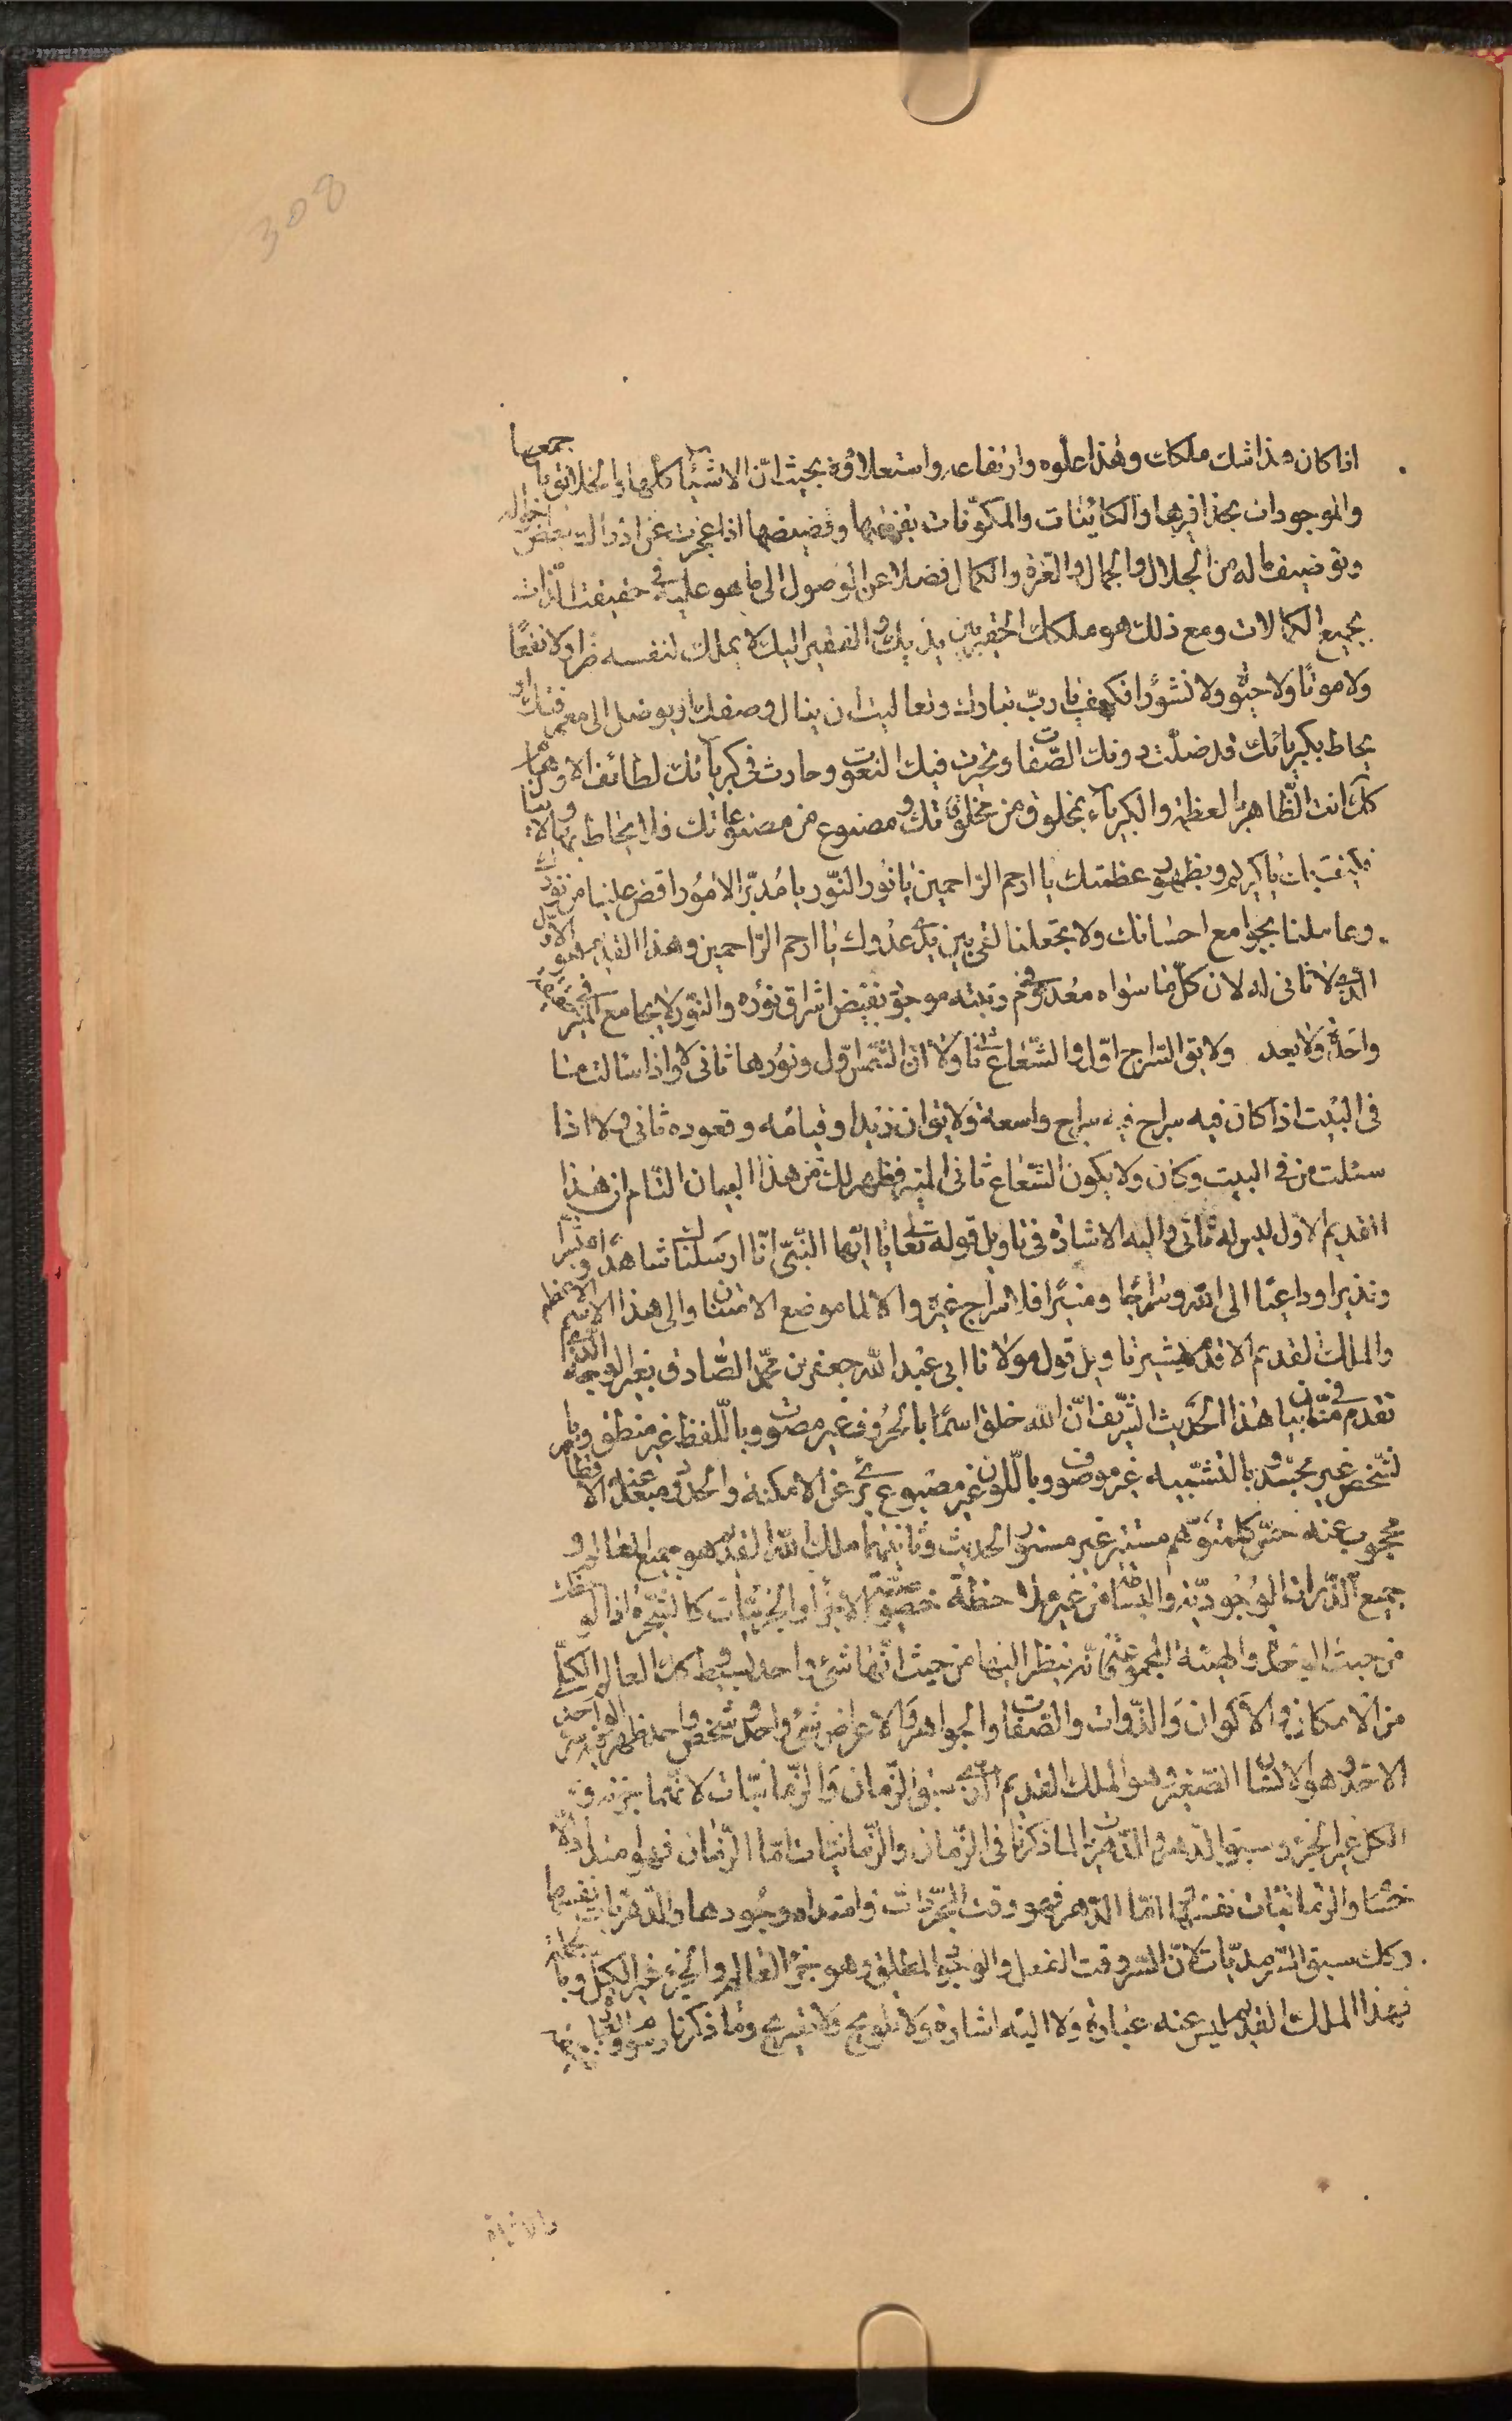 308
اذا كان هذا شان ملكك وهذا علوه وارتفاعه واستعلاؤه بحيث انّ الاشياء كلّها والخلائق باجمعها
والموجودات بحذافيرها والكائنات والمكوّنات بقضها وقضيضها اذا عجزت عن ادراك بعض احواله
وتوصيف ماله من الجلال والجمال والعزة والكمال فضلا عن الوصول الى ما هو عليه فى حقيقت الذات
بجميع الكمالات ومع ذلك هو ملكك الحقير بين يديك والفقير اليك لا يملك لنفسه ضرا ولا نفعًا
ولا موتًا ولا حيوة ولا نشورًا فكيف يا ربّ تباركت وتعاليت ان ينال وصفك او يوصل الى معرفتك او
يحاط بكبريائك قد ضلّت دونك الصّفات وتحيرت فيك النعوت وحارت فى كبريآئك لطائف الاوهام
كذلك انت الظّاهر بالعظمة والكبرياء بمخلوق من مخلوقاتك ومصنوع من مصنوعاتك فاذا يحاط بها
فكيف بك يا كريم وبظهور عظمتك يا ارحم الراحمين يا نور النّور يا مُدبّر الامُور افض علينا من نورك
وعاملنا بجوامع احسانك ولا تجعلنا لقى بين يدى عدوك يا ارحم الرّاحمين وهذا القديم هو الاوّل
الّذى لا ثانى له لان كلّ ما سواه معدوم فى رتبته موجود بفيض اشراق نوره والنّور لا يجامع المنير فى
واحدة ولا يعد ولا يق السّراج اوّل والشّعاع ثانى ولا ان الشّمس اوّل ونورها ثانى ولا اذا سالت منا
فى البيت اذا كان فيه سراج فيه سراج واسعة ولا يق ان زيدا وقيامه وقعوده ثانى ولا اذا
سئلت من فى البيت وكان ولا يكون الشّعاع ثانى المنير فظهر لك من هذا البيان التام ان هذا
القديم الاوّل ليس له ثانى واليه الاشارة فى تاويل قوله تعالى يا ايّها النّبىّ انّا ارسلناك شاهدًا ومبشّرا
ونذيرا وداعيًا الى الله وسراجًا ومنيرًا فلا سراج غيره والا لما موضع الامتنان والى هذا الاسم الاعظم
والملك القديم الاقدم يشير تاويل قول مولانا ابى عبد الله جعفر بن محمّد الصّادق بغير الوجه الّذى
تقدم منّا فى بيان هذا الحديث الشّريف انّ الله خلق اسمًا بالحروف غير مصوت وباللّفظ غير منطق وبا
لشّخص غير مجسّد وبالتشبيه غير موصوف وباللّون غير مصبوغ برئ عن الامكنة والحدود مبعد عنه الاقطار
محجوب عنه حسّ كلّ متوهّم مستتر غير مستور الحديث وثانيهما ملك الله القديم هو جميع العالم و
جميع الذّرات الوُجُوديّة والبسائط من غير ملاحظة خصوصيّة الاجزاء والجزئيّات كالشّجرة اذا لوحظت
من حيث الوحدة والهيئة المجموعيّة فانّه ينظر اليها من حيث انّها شئ واحد بسيط كذلك العالم الكلّى
من الامكان والاكوان والذّوات والصّفات والجواهر والاعراض شئ واحد وشخص واحد ظهر فيه سر الواحد
الاحد وهو الانسان الصّغير وهو الملك القديم الذى سبق الزّمان والزّمانيّات لانّهما جزئه و
الكل غير الجزء وسبق الدهر والدّهريّات لما ذكرنا فى الزّمان والزّمانيّات امّا الزّمان فهو امتداد
حسّا والزّمانيّات نفسها امّا الدّهر فهو وقت المجرّدات وامتداد وجُودها والدّهريّات نفسها
وكذلك سبق السّرمديّات لانّ السّرمد وقت الفعل والوجود المطلق وهو جزء العالم والجزء غير الكلّ وبا
فهذا الملك القديم ليس عنه عبارة ولا اليه اشارة ولا تلويح ولا تصريح وما ذكرنا رسوم
بالاشارة